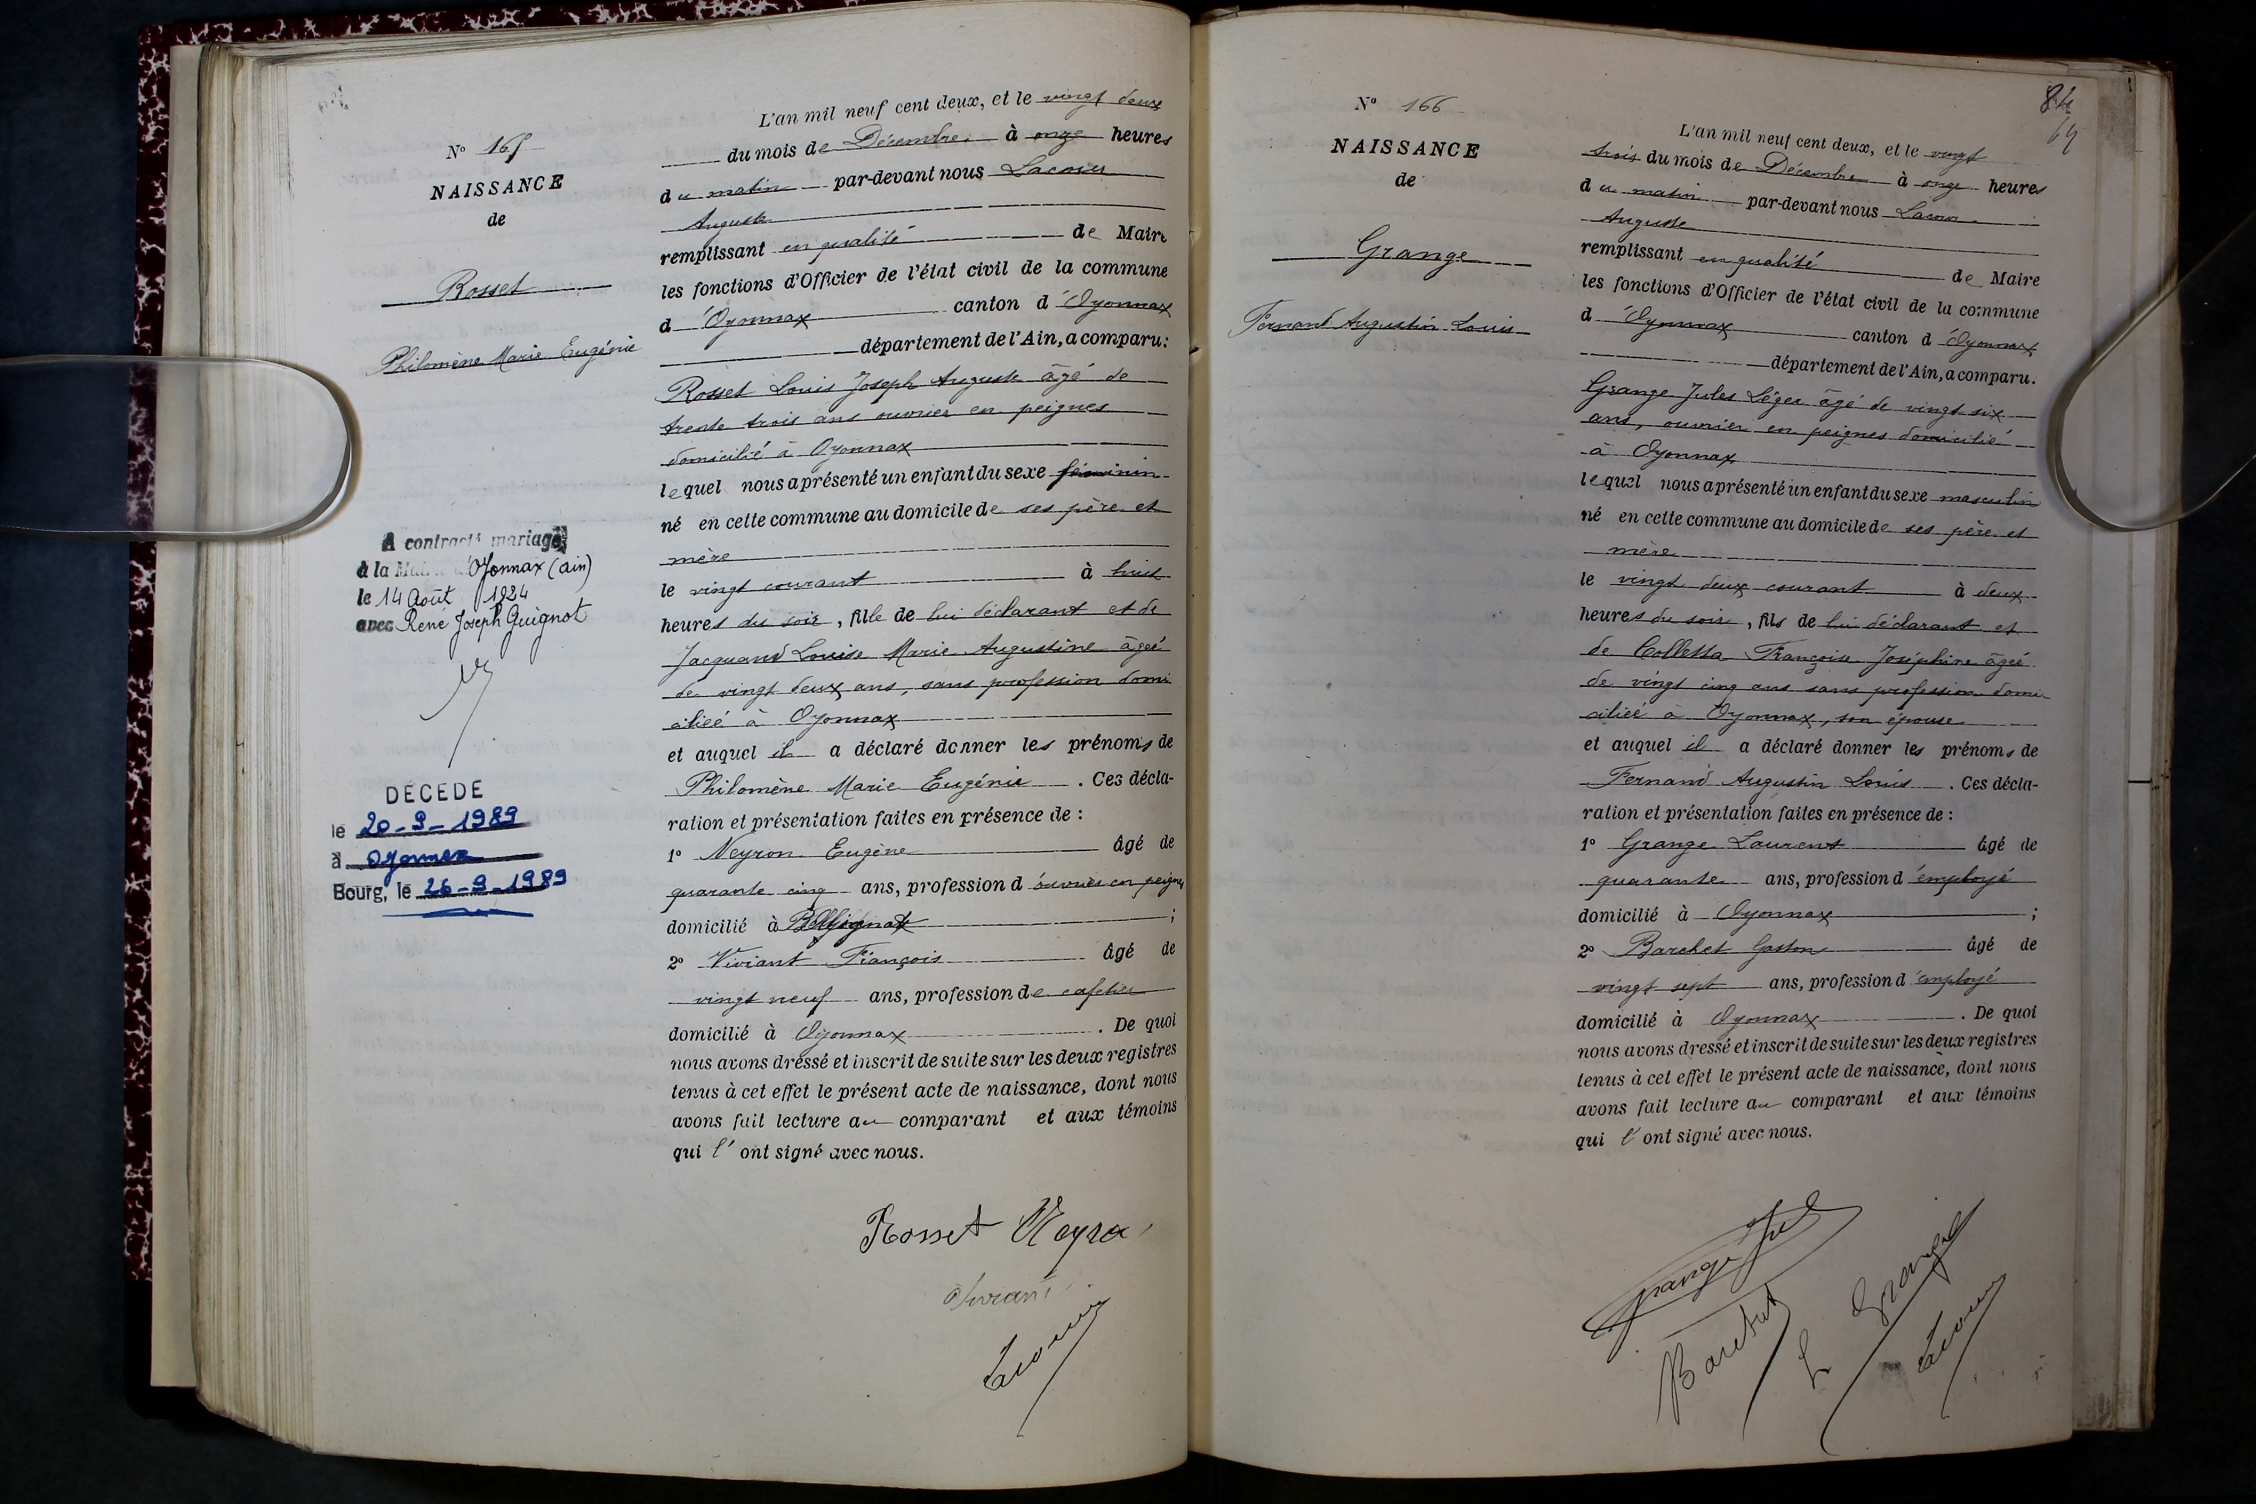 Nº 165
NAISSANCE
de
Rosset
Philomène Marie Eugénie
A contracté mariage
à la Mairie d'Oyonnax (ain)
le 14 Août 1924
avec René Joseph Guignot
DÉCÉDÉ
le 20-9-1989
à Oyonnax
Bourg, le 26-9-1989
L'an mil neuf cent deux, et le vingt deux
du mois de Décembre à onze heures
du matin par-devant nous Lacour
Auguste
remplissant en qualité de Maire
les fonctions d'Officier de l'état civil de la commune
d'Oyonnax canton d'Oyonnax
département de l'Ain, a comparu:
Rosset Louis Joseph Auguste âgé de
trente trois ans ouvrier en peignes
domicilié à Oyonnax
lequel nous a présenté un enfant du sexe féminin
né en cette commune au domicile de ses père et
mère
le vingt courant à huit
heures du soir, fille de lui déclarant et de
Jacquand Louise Marie Augustine âgée
de vingt deux ans, sans profession domi
ciliée à Oyonnax
et auquel il a déclaré donner les prénoms de
Philomène Marie Eugénie. Ces décla-
ration et présentation faites en présence de :
1º Neyron Eugène âgé de
quarante cinq ans, profession d'ouvrier en peignes
domicilié à Bellignat ;
2º Viviant François âgé de
vingt neuf ans, profession de cafetier
domicilié à Oyonnax. De quoi
nous avons dressé et inscrit de suite sur les deux registres
tenus à cet effet le présent acte de naissance, dont nous
avons fait lecture au comparant et aux témoins
qui l'ont signé avec nous.
Rosset Neyron
Viviant
Lacour
84
Nº 166
NAISSANCE
de
Grange
Fernand Augustin Louis
L'an mil neuf cent deux, et le vingt
trois du mois de Décembre à onze heures
du matin par-devant nous Lacour
Auguste
remplissant en qualité de Maire
les fonctions d'Officier de l'état civil de la commune
d'Oyonnax canton d'Oyonnax
département de l'Ain, a comparu.
Grange Jules Léger âgé de vingt six
ans, ouvrier en peignes domicilié
à Oyonnax
lequel nous a présenté un enfant du sexe masculin
né en cette commune au domicile de ses père et
mère
le vingt deux courant à deux
heures du soir, fils de lui déclarant et
de Colletta Françoise Joséphine âgée
de vingt cinq ans sans profession domi
ciliée à Oyonnax, son épouse
et auquel il a déclaré donner les prénoms de
Fernand Augustin Louis. Ces décla-
ration et présentation faites en présence de :
1º Grange Laurent âgé de
quarante ans, profession d'employé
domicilié à Oyonnax ;
2º Barchet Gaston âgé de
vingt sept ans, profession d'employé
domicilié à Oyonnax. De quoi
nous avons dressé et inscrit de suite sur les deux registres
tenus à cet effet le présent acte de naissance, dont nous
avons fait lecture au comparant et aux témoins
qui l'ont signé avec nous.
Grange Jules
Barchet
L Grange
Lacour